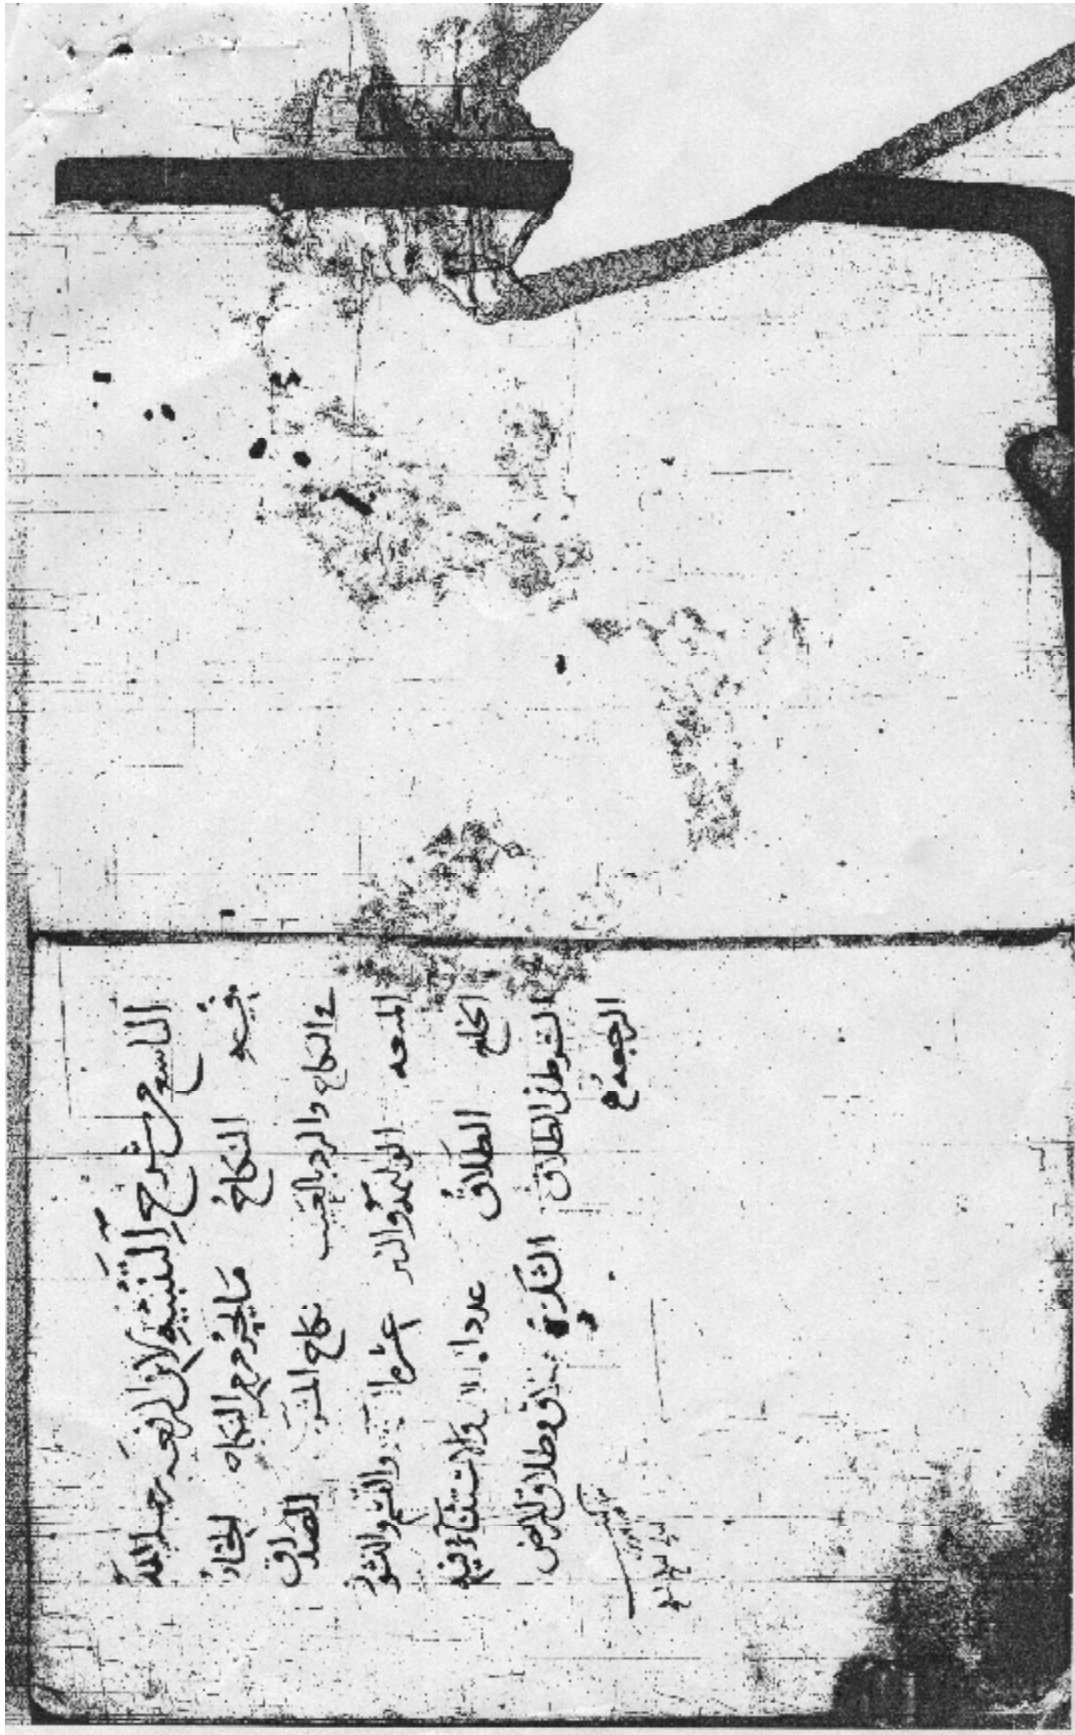 التاسع من شرح التنبيه لابن الرفعه رحمه الله
فيه النكاح ما يحرم من النكاح الخيار
في النكاح والرد بالعيب نكاح المشرك الصداق
المتعه الوليمه والنثر عشرة والقسم والنشوز
الخلع الطلاق عدد والاستثناء فيه
الشرط في الطلاق الشك وطلاق المريض
الرجعه